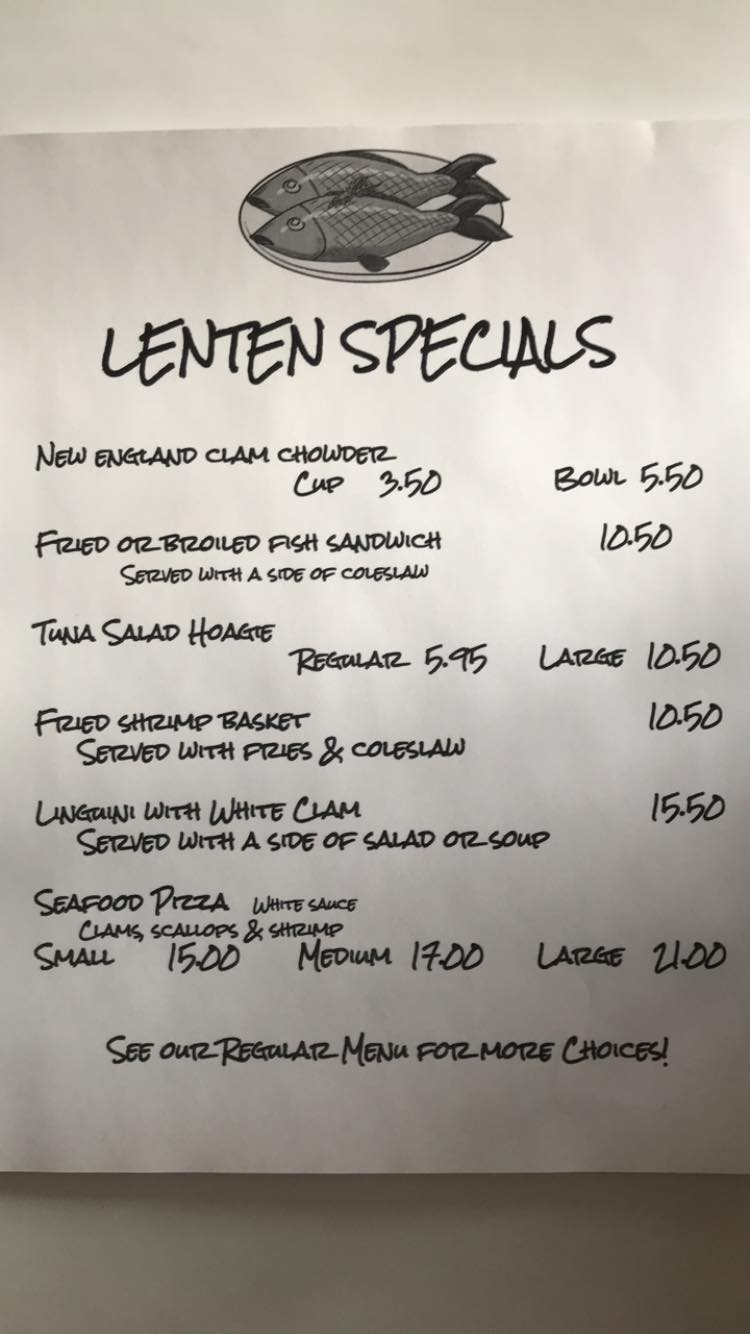 LENTEN SPECIALS
NEW ENGLAND CLAM CHOWDER
CUP 3.50 BOWL 5.50
FRIED OR BROILED FISH SANDWICH 10.50
SERVED WITH A SIDE OF COLESLAW
TUNA SALAD HOAGIE
REGULAR 5.95 LARGE 10.50
FRIED SHRIMP BASKET 10.50
SERVED WITH FRIES & COLESLAW
LINGUINI WITH WHITE CLAM 15.50
SERVED WITH A SIDE OF SALAD OR SOUP
SEAFOOD PIZZA WHITE SAUCE
CLAMS, SCALLOPS & SHRIMP
SMALL 15.00 MEDIUM 17.00 LARGE 21.00
SEE OUR REGULAR MENU FOR MORE CHOICES!